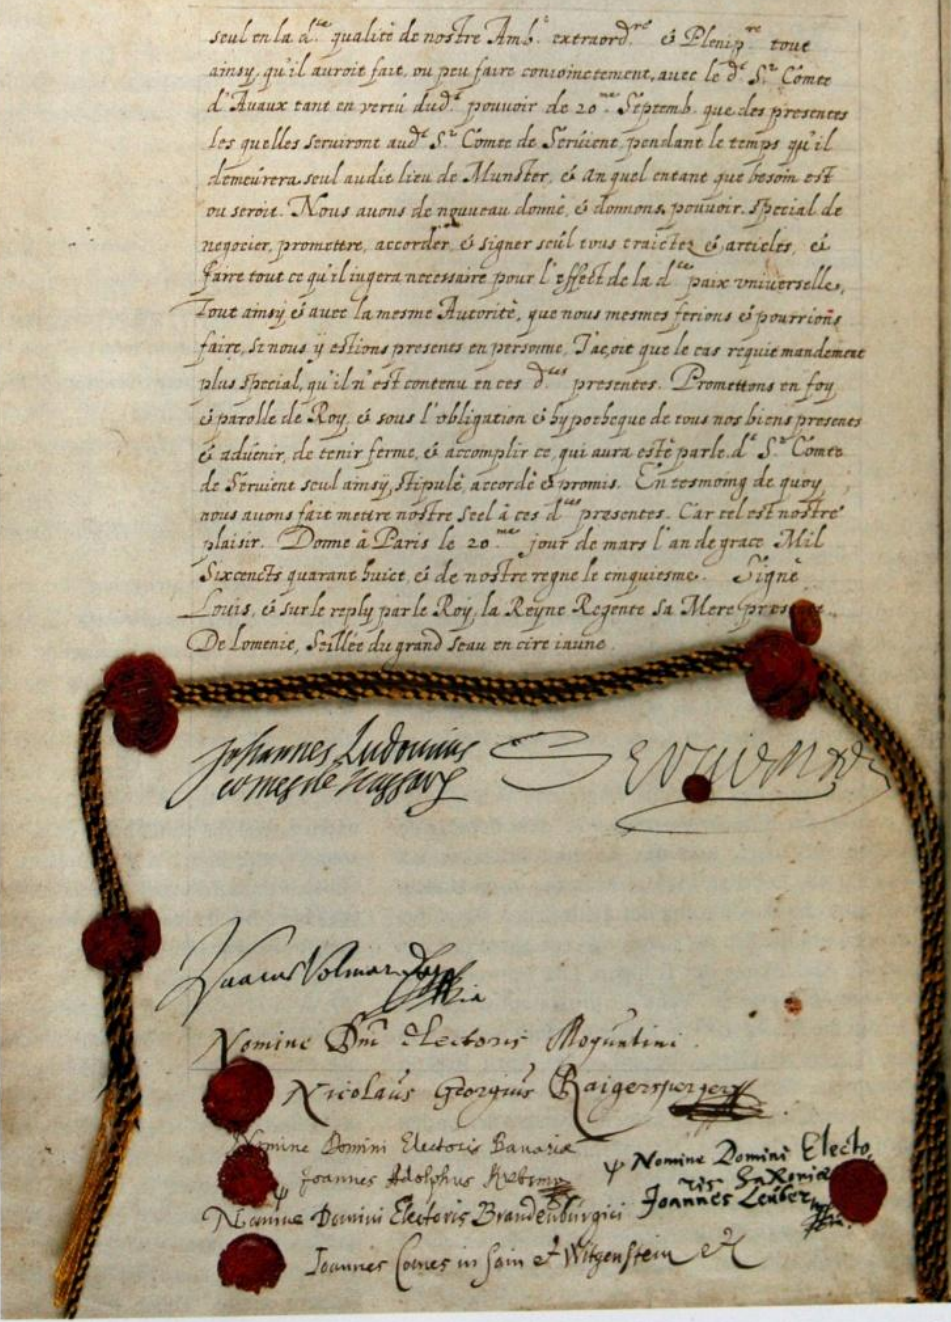 seul en la d.te qualité de nostre Amb.r extraord.re & Plenip.re tout
ainsy, qu'il auroit fait, ou peu faire conioinctement, avec le d.t S.r Comte
d'Avaux tant en vertu dud.t pouvoir de 20.me Septemb. que des presentes
les quelles serviront aud.t S.r Comte de Servient, pendant le temps qu'il
demeurera seul audit lieu de Munster, & an quel entant que besoin est
ou seroit. Nous avons de nouveau donné, & donnons, pouvoir special de
negocier, promettre, accorder, & signer seul tous traictez & articles, &
faire tout ce qu'il iugera necessaire pour l'effect de la d.te paix vniverselle,
Tout ainsy & avec la mesme Autorité, que nous mesmes ferions & pourrions
faire, si nous ÿ estions presents en personne, Jaçoit que le cas requie mandement
plus special, qu'il n'est contenu en ces d.tes presentes. Promettons en foy
& parolle de Roy, & sous l'obligation & hypotheque de tous nos biens presents
& advenir, de tenir ferme, & accomplir ce, qui aura esté par le d.t S.r Comte
de Servient seul ainsÿ, stipulé, accordé & promis. En tesmoing de quoy
nous avons fait mettre nostre seel à ces d.tes presentes. Car tel est nostre
plaisir. Donné à Paris le 20.me jour de mars l'an de grace Mil
Sixcencts quarant huict, & de nostre regne le cinquiesme. Signé
Louis, & sur le reply par le Roy, la Reyne Regente sa Mere presente
De Lomenie, Seillée du grand seau en cire iaune.
Johannes Ludovicus Servient
comes de Nassaw
Isaacus Volmar
Nomine Dni Electoris Moguntini.
Nicolaus Georgius Raigersperger
Nomine Domini Electoris Bavariæ
Joannes Adolphus Krebs
Nomine Domini Electo
ris Saxoniæ
Joannes Leuber
Nomine Domini Electoris Brandenburgici
Joannes Comes in Sain & Witgenstein